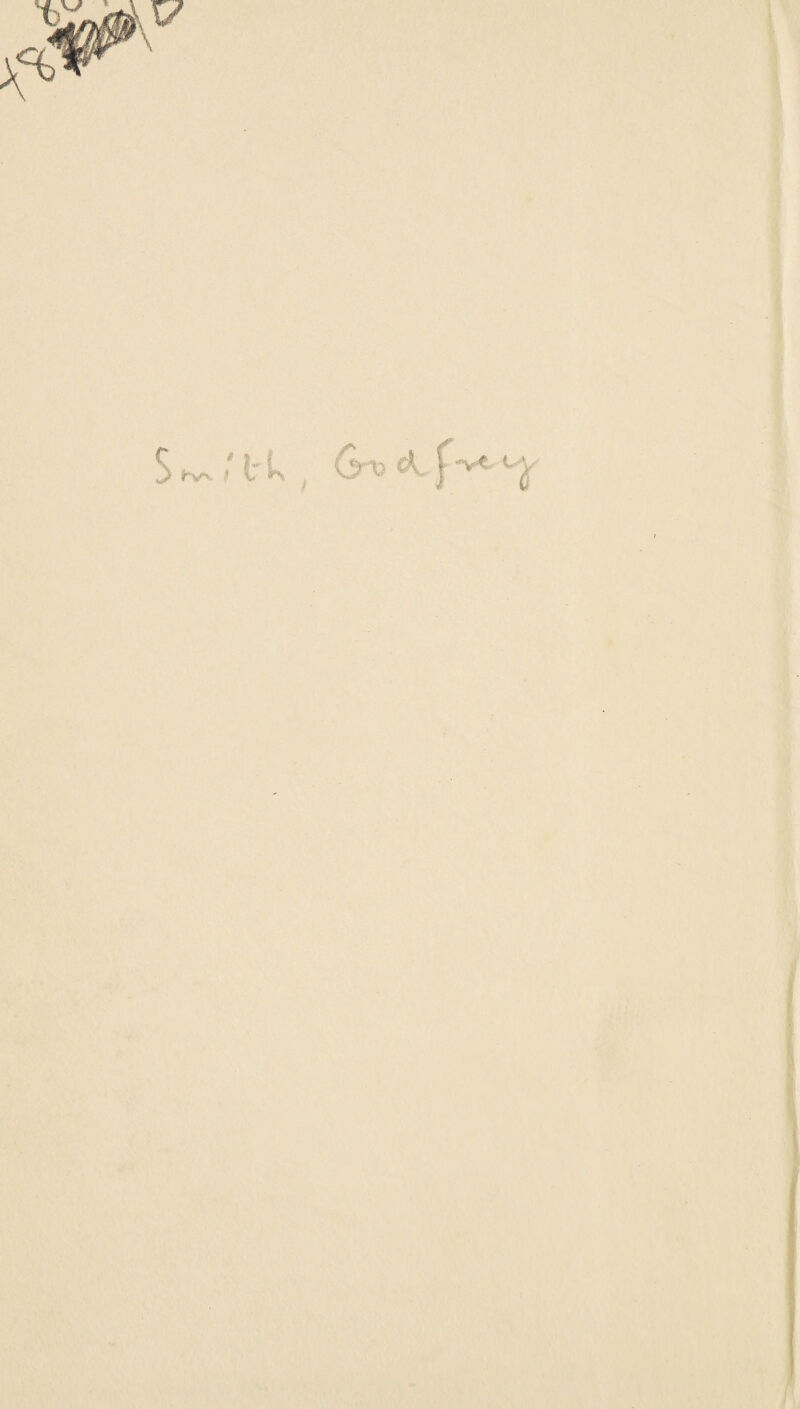 Smith, Godfrey